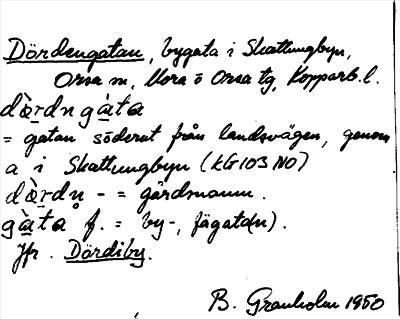 Dördengatan, bygata i Skattungbyn,
Orsa sn, Mora o Orsa tg, Kopparb. l.
dàrdn gàta
= gatan söderut från landsvägen, genom
a i Skattungbyn (KG 103 NO)
dàrdn - = gårdsnamn.
gàta f. = by-, fägata(n).
Jfr. Dördiby.
B. Granholm 1950